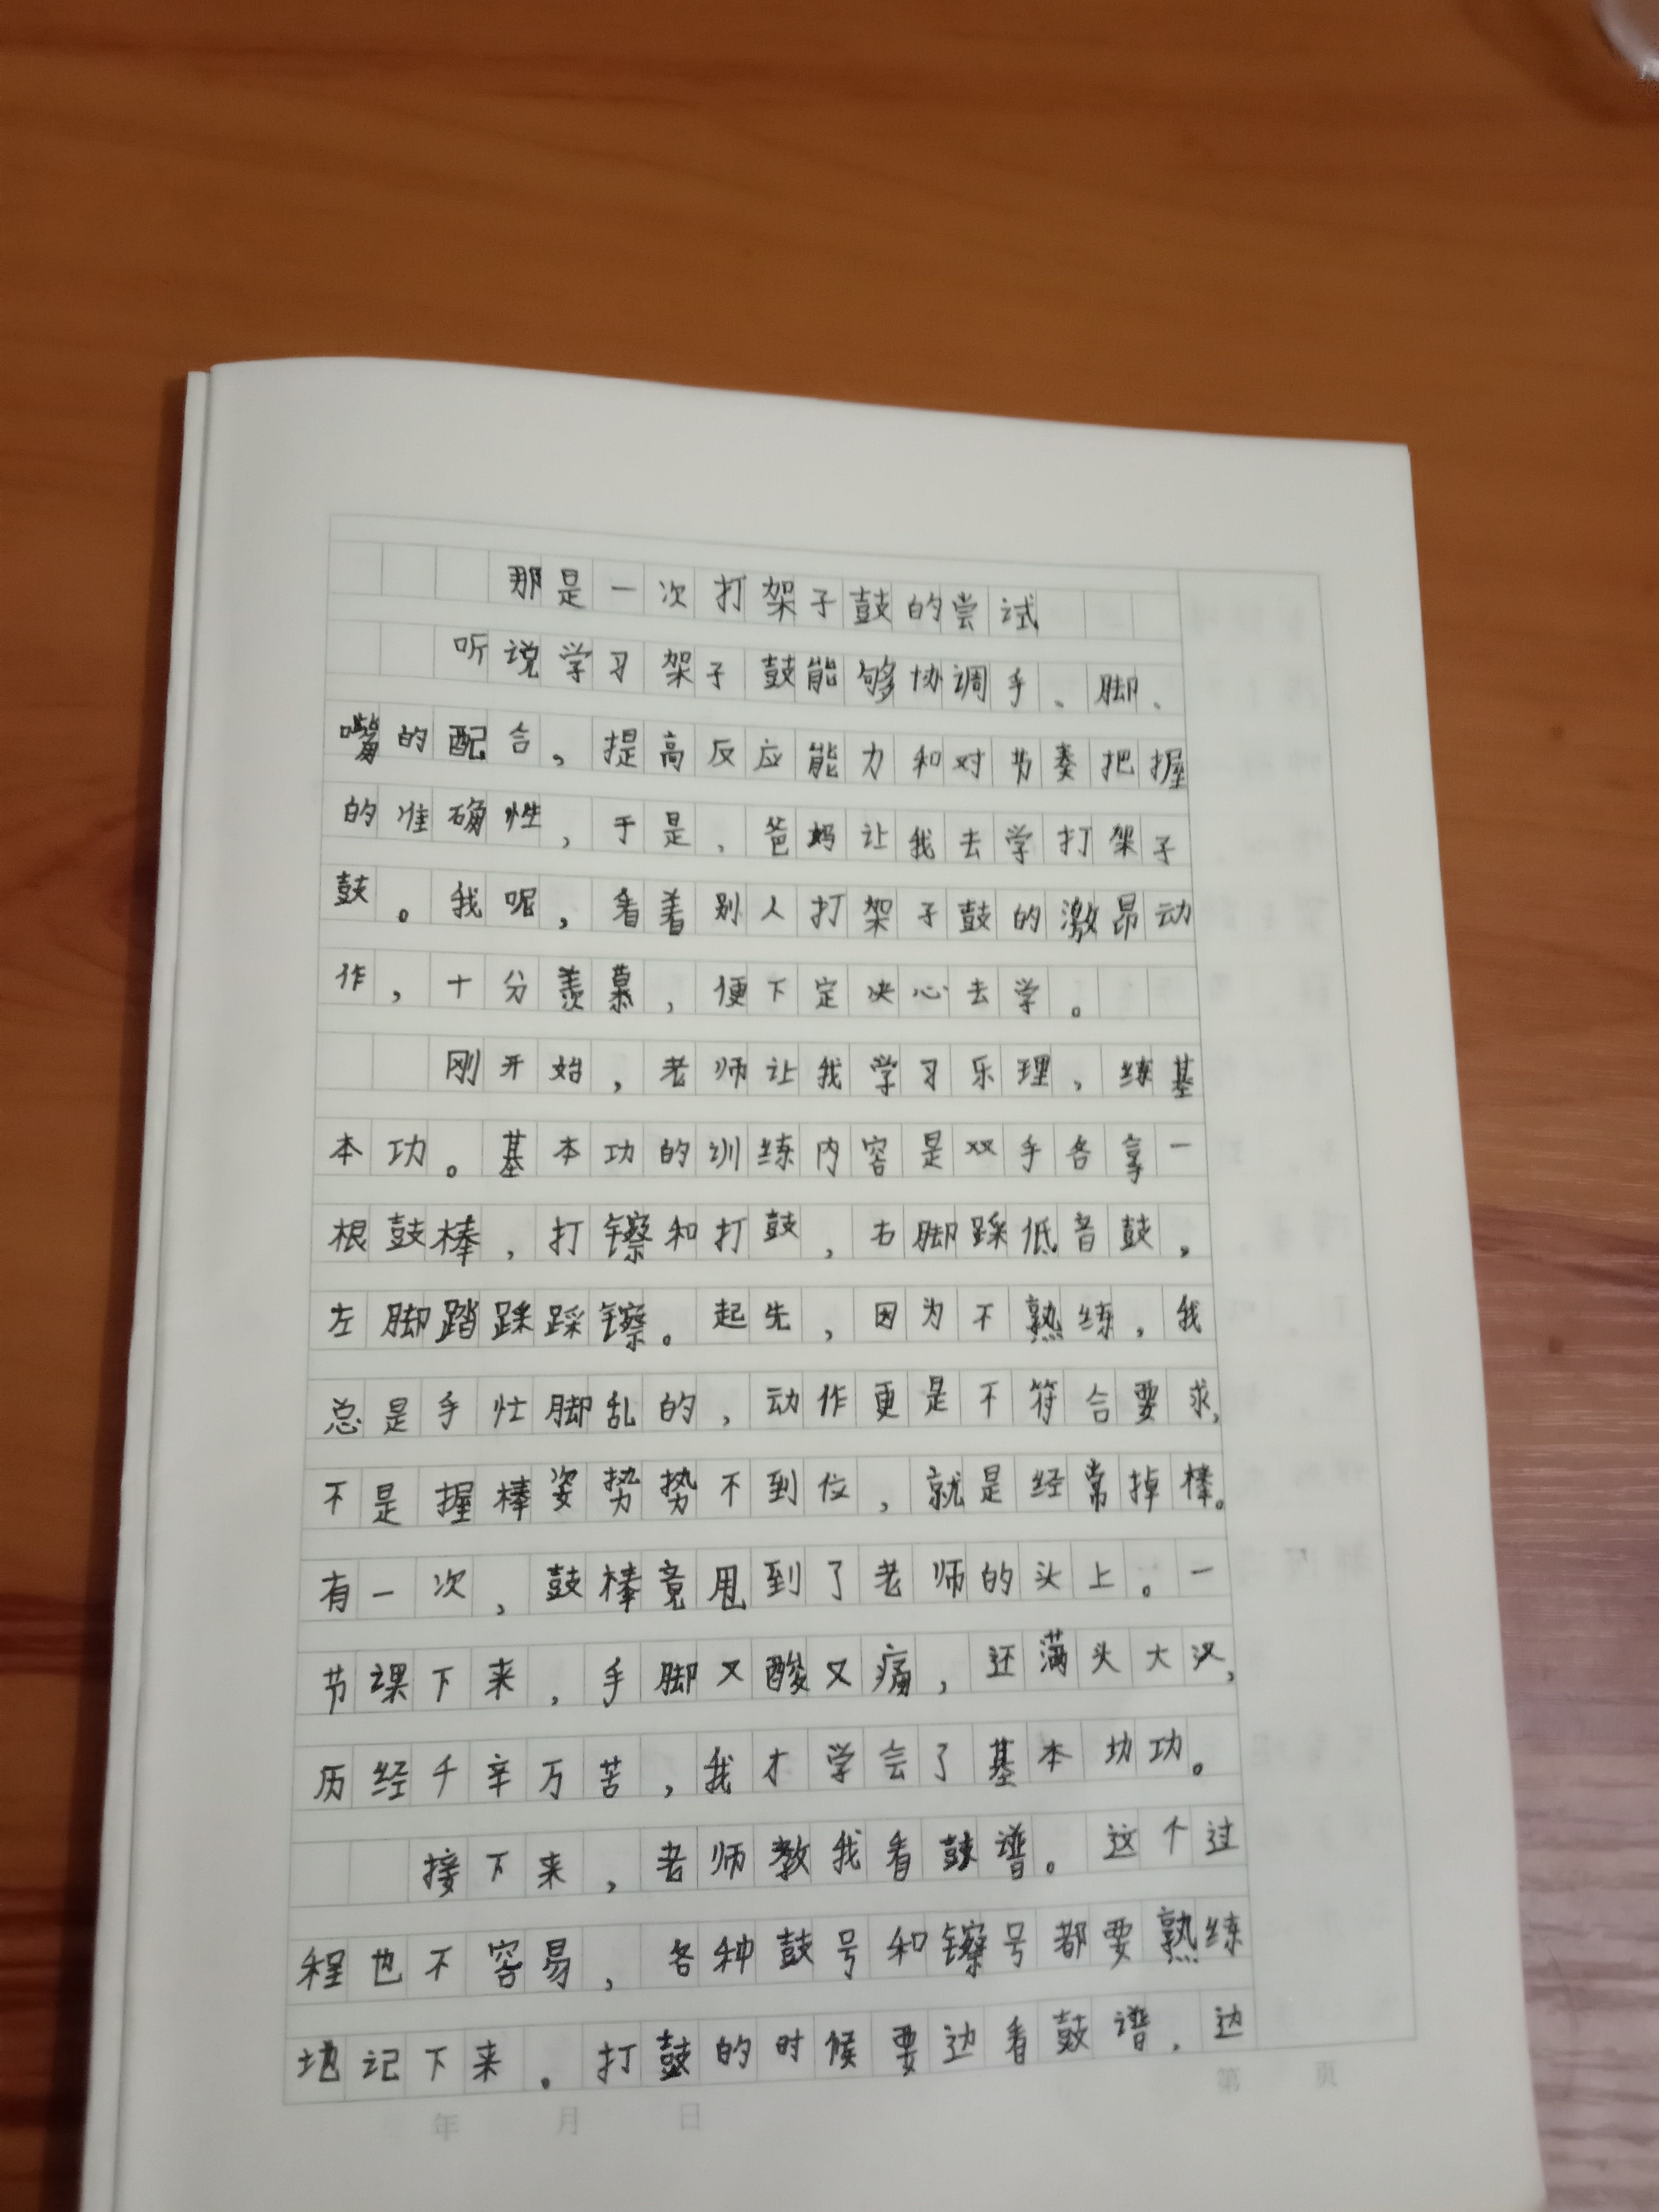 那是一次打架子鼓的尝试
听说学习架子鼓能够协调手、脚、
嘴的配合，提高反应能力和对节奏把握
的准确性，于是，爸妈让我去学打架子
鼓。我呢，看着别人打架子鼓的激昂动
作，十分羡慕，便下定决心去学。
刚开始，老师让我学习乐理，练基
本功。基本功的训练内容是双手各拿一
根鼓棒，打镲和打鼓，右脚踩低音鼓，
左脚踏踩踩镲。起先，因为不熟练，我
总是手忙脚乱的，动作更是不符合要求，
不是握棒姿势势不到位，就是经常掉棒。
有一次，鼓棒竟甩到了老师的头上。一
节课下来，手脚又酸又痛，还满头大汉，
历经千辛万苦，我才学会了基本功功。
接下来，老师教我看鼓谱。这个过
程也不容易，各种鼓号和镲号都要熟练
地记下来。打鼓的时候要边看鼓谱，边
年 月 日
第 页